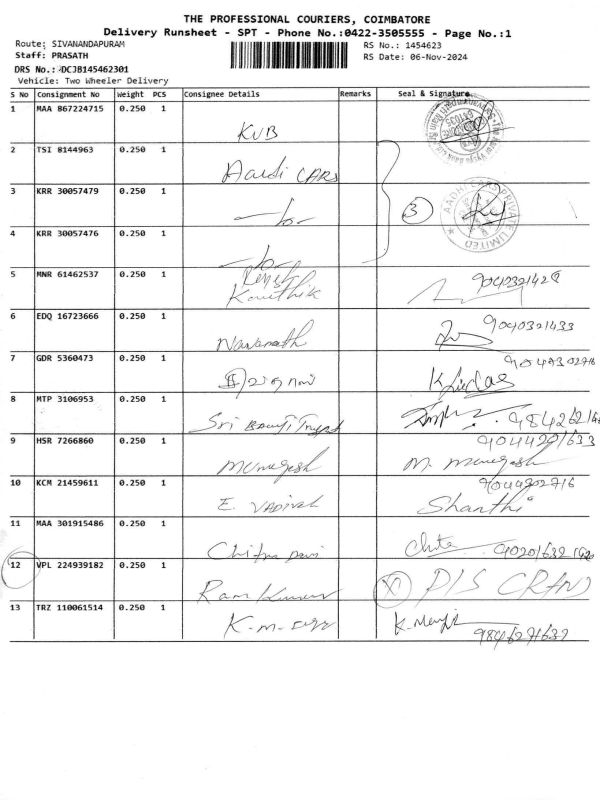 THE PROFESSIONAL COURIERS, COIMBATORE
Delivery Runsheet - SPT - Phone No.:0422-3505555 - Page No.:1
Route: SIVANANDAPURAM
RS No.: 1454623
Staff: PRASATH
RS Date: 06-Nov-2024
DRS No.: DCJB145462301
Vehicle: Two Wheeler Delivery
S No Consignment No Weight PCS Consignee Details Remarks Seal & Signature
1 MAA 867224715 0.250 1 KVB
2 TSI 8144963 0.250 1 Aardi CARS
3 KRR 30057479 0.250 1 -do- 3 AADHI CARS PRIVATE LIMITED
4 KRR 30057476 0.250 1 -do-
5 MNR 61462537 0.250 1 Kauthik
6 EDQ 16723666 0.250 1 Navanath 9040321433
7 GDR 5360473 0.250 1
8 MTP 3106953 0.250 1 Sri
9 HSR 7266860 0.250 1 Murugesh M. Murugesh
10 KCM 21459611 0.250 1 E. VADIVEL Shanthi
11 MAA 301915486 0.250 1 Chitra Devi Chitra
12 VPL 224939182 0.250 1 Ram Kumar
13 TRZ 110061514 0.250 1 K.m.